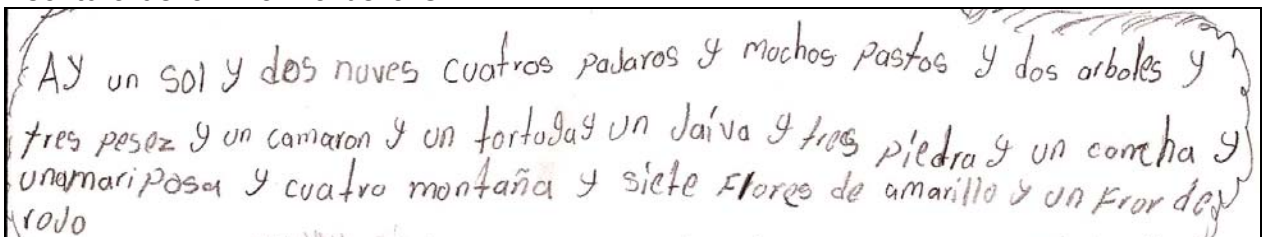 AY un sol y dos nuves cuatros pajaros y mochos pastos y dos arboles y
tres pesez y un camaron y un tortuga y un Jaiva y tres piedra y un concha y
unamariposa y cuatro montaña y siete Flores de amarillo y un Fror de
rojo